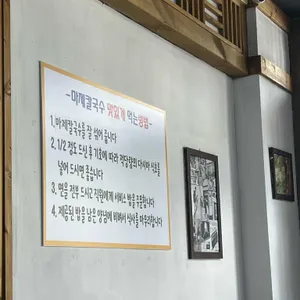 -마제칼국수 맛있게 먹는방법-
1. 마제칼국수를 잘 섞어 줍니다
2. 1/2 정도 드신 후 기호에 따라 적당량의 다시마 식초를
넣어 드시면 좋습니다
3. 면을 전부 드시고 직원에게 서비스 밥을 주문합니다
4. 제공된 밥을 남은 양념에 비벼서 식사를 마무리합니다